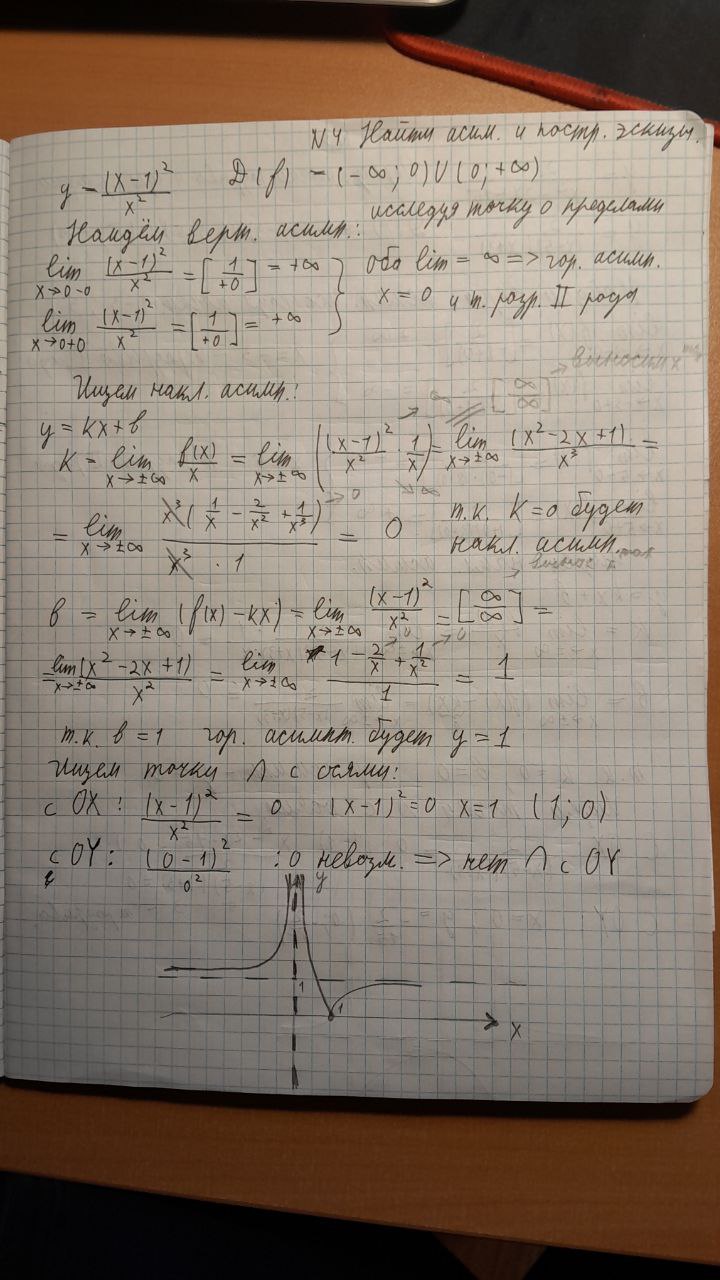 N4 Найти асим. и постр. эскизы.
y = (x-1)²/x² D(f) = (-∞; 0)U(0; +∞)
исследуя точку 0 пределами
Найдём верт. асимп.:
lim x→0-0 (x-1)²/x² = [1/+0] = +∞ } оба lim = ∞ => гор. асимп.
lim x→0+0 (x-1)²/x² = [1/+0] = +∞ x = 0 и т. разр. II рода
Ищем накл. асимп.: ∞ [∞/∞] → выносим x
y = kx + b
K = lim x→±∞ f(x)/x = lim x→±∞ ((x-1)²/x² · 1/x) = lim x→±∞ (x²-2x+1)/x³ =
= lim x→±∞ x³(1/x - 2/x² + 1/x³)→0 / x³ · 1 = 0 т.к. K=0 будет
накл. асимп.
b = lim x→±∞ (f(x) - kx) = lim x→±∞ (x-1)²/x² = [∞/∞] =
= lim x→±∞ (x²-2x+1)/x² = lim x→±∞ (1 - 2/x→0 + 1/x²→0)/1 = 1
т.к. b = 1 гор. асимпт. будет y = 1
Ищем точки ∩ с осями:
с OX: (x-1)²/x² = 0 (x-1)²=0 x=1 (1; 0)
с OY: (0-1)²/0² :0 невозм. => нет ∩ с OY
y
1
1
x